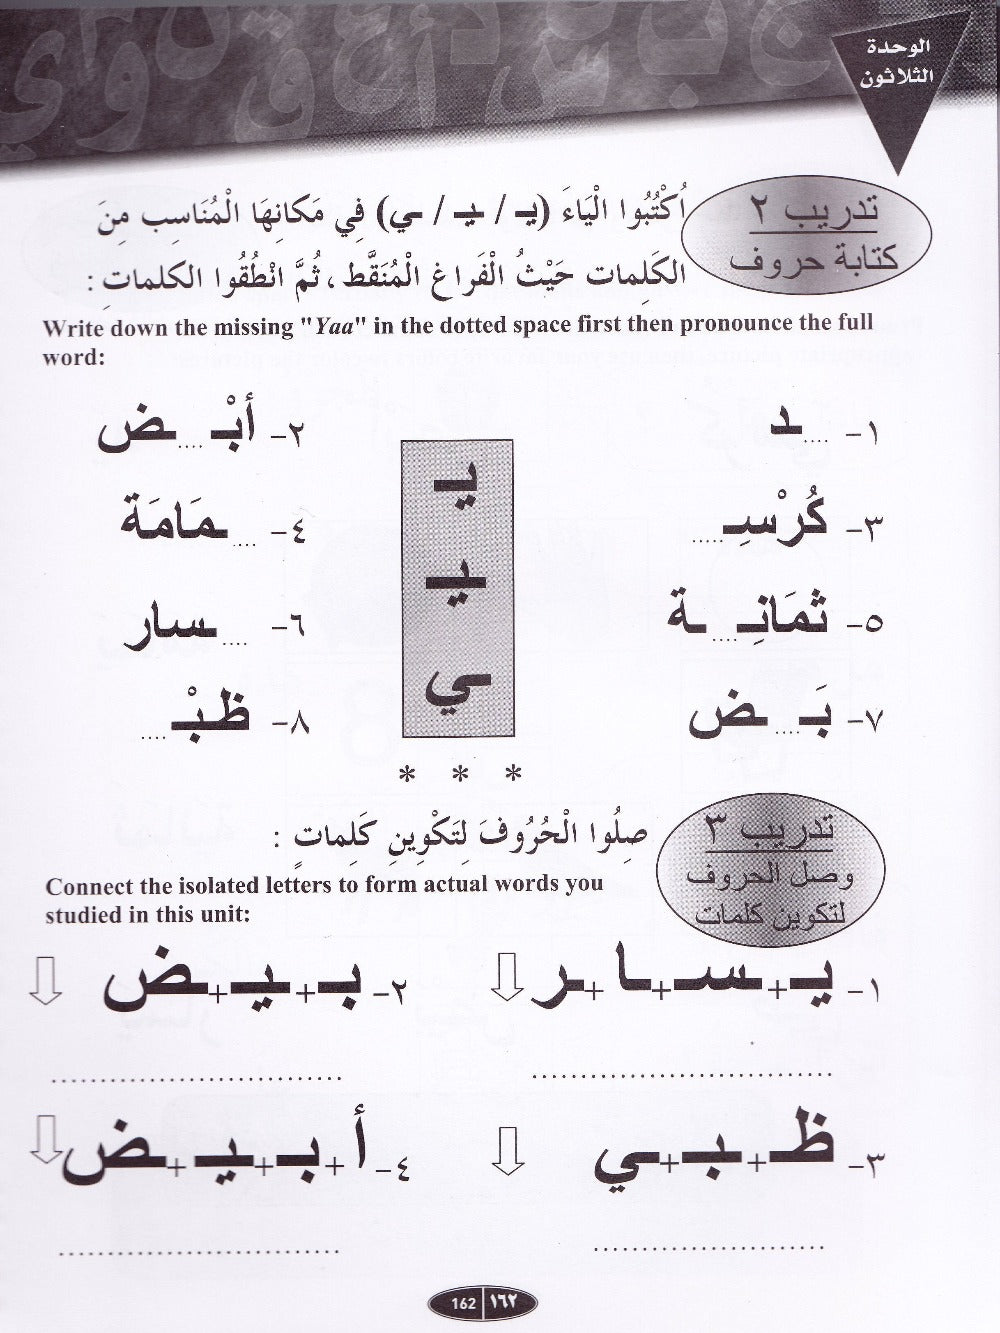 الوحدة
الثلاثون
تدريب ٢
كتابة حروف
اُكْتُبُوا الْيَاءَ (يـ / ـيـ / ـي) فِي مَكَانِهَا الْمُنَاسِب مِنَ
الكَلِمات حَيْثُ الْفَراغ الْمُنَقَّط، ثُمَّ انْطُقُوا الكلماتِ :
Write down the missing "Yaa" in the dotted space first then pronounce the full
word:
١- ....ـد
٢- أَبْـ....ـض
٣- كُرْسِـ.....
٤- ....ـمَامَة
٥- ثَمَانِـ....ـة
٦- ....ـسار
٧- بَـ....ـض
٨- ظَبْـ....
يـ
ـيـ
ـي
* * *
تدريب ٣
وصل الحروف
لتكوين كلمات
صِلُوا الْحُرُوفَ لِتَكْوِينِ كَلِماتٍ :
Connect the isolated letters to form actual words you
studied in this unit:
١- يـ+ـسـ+ـا+ـر
٢- بـ+ـيـ+ـض
٣- ظـ+ـبـ+ـي
٤- أ+بـ+ـيـ+ـض
162 ١٦٢